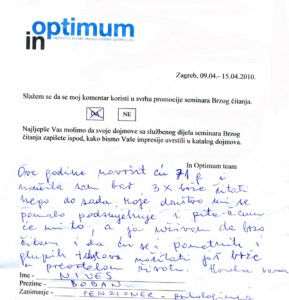 optimum
in
Zagreb, 09.04.- 15.04.2010.
Slažem se da se moj komentar koristi u svrhu promocije seminara Brzog
čitanja.
DA NE
Najljepše Vas molimo da svoje dojmove sa službenog dijela seminara Brzog
čitanja zapišete ispod, kako bismo Vaše impresije uvrstili u katalog dojmova.
In Optimum team
Ove godine navršit ću 71 g i
naučila sam bar 3 x brže čitati
nego do sada. Moje društvo mi se
pomalo podsmjehuje i pita čemu
će mi to, a ja uzvraćam da brzo
čitam i da ću se i pametnih i
glupih tekstova načitati još brže
u preostalom životu. Hvala vama
Ime - NIVES
Prezime - BOBAN
Zanimanje - PENZIONER -